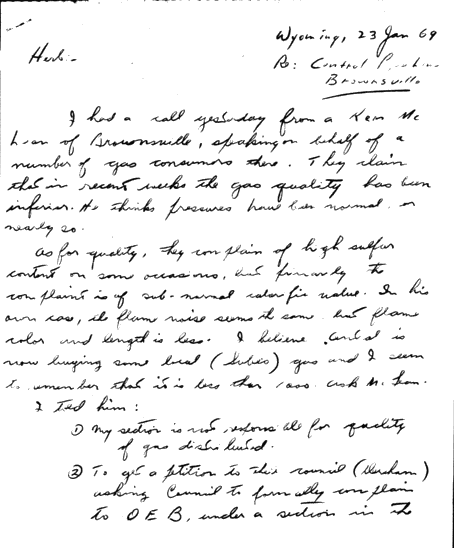 Wyoming, 23 Jan 69
Herb -
Re: Central
Brownsville
I had a call yesterday from a Ken Mc
Lean of Brownsville, speaking on behalf of a
number of gas consumers there. They claim
that in recent weeks the gas quality has been
inferior. He thinks pressures have been normal, or
nearly so.
As for quality, they complain of high sulfur
content on some occasions, but primarily the
complaint is of sub-normal calorific value. In his
own case, the flame noise seems the same but flame
color and length is less. I believe Central is
now buying some local gas and I seem
to remember that it is less than 1000. Ask
I Told him:
① My section is not responsible for quality
of gas distributed.
② To get a petition to the council
asking Council to formally complain
to OEB, under a section in the